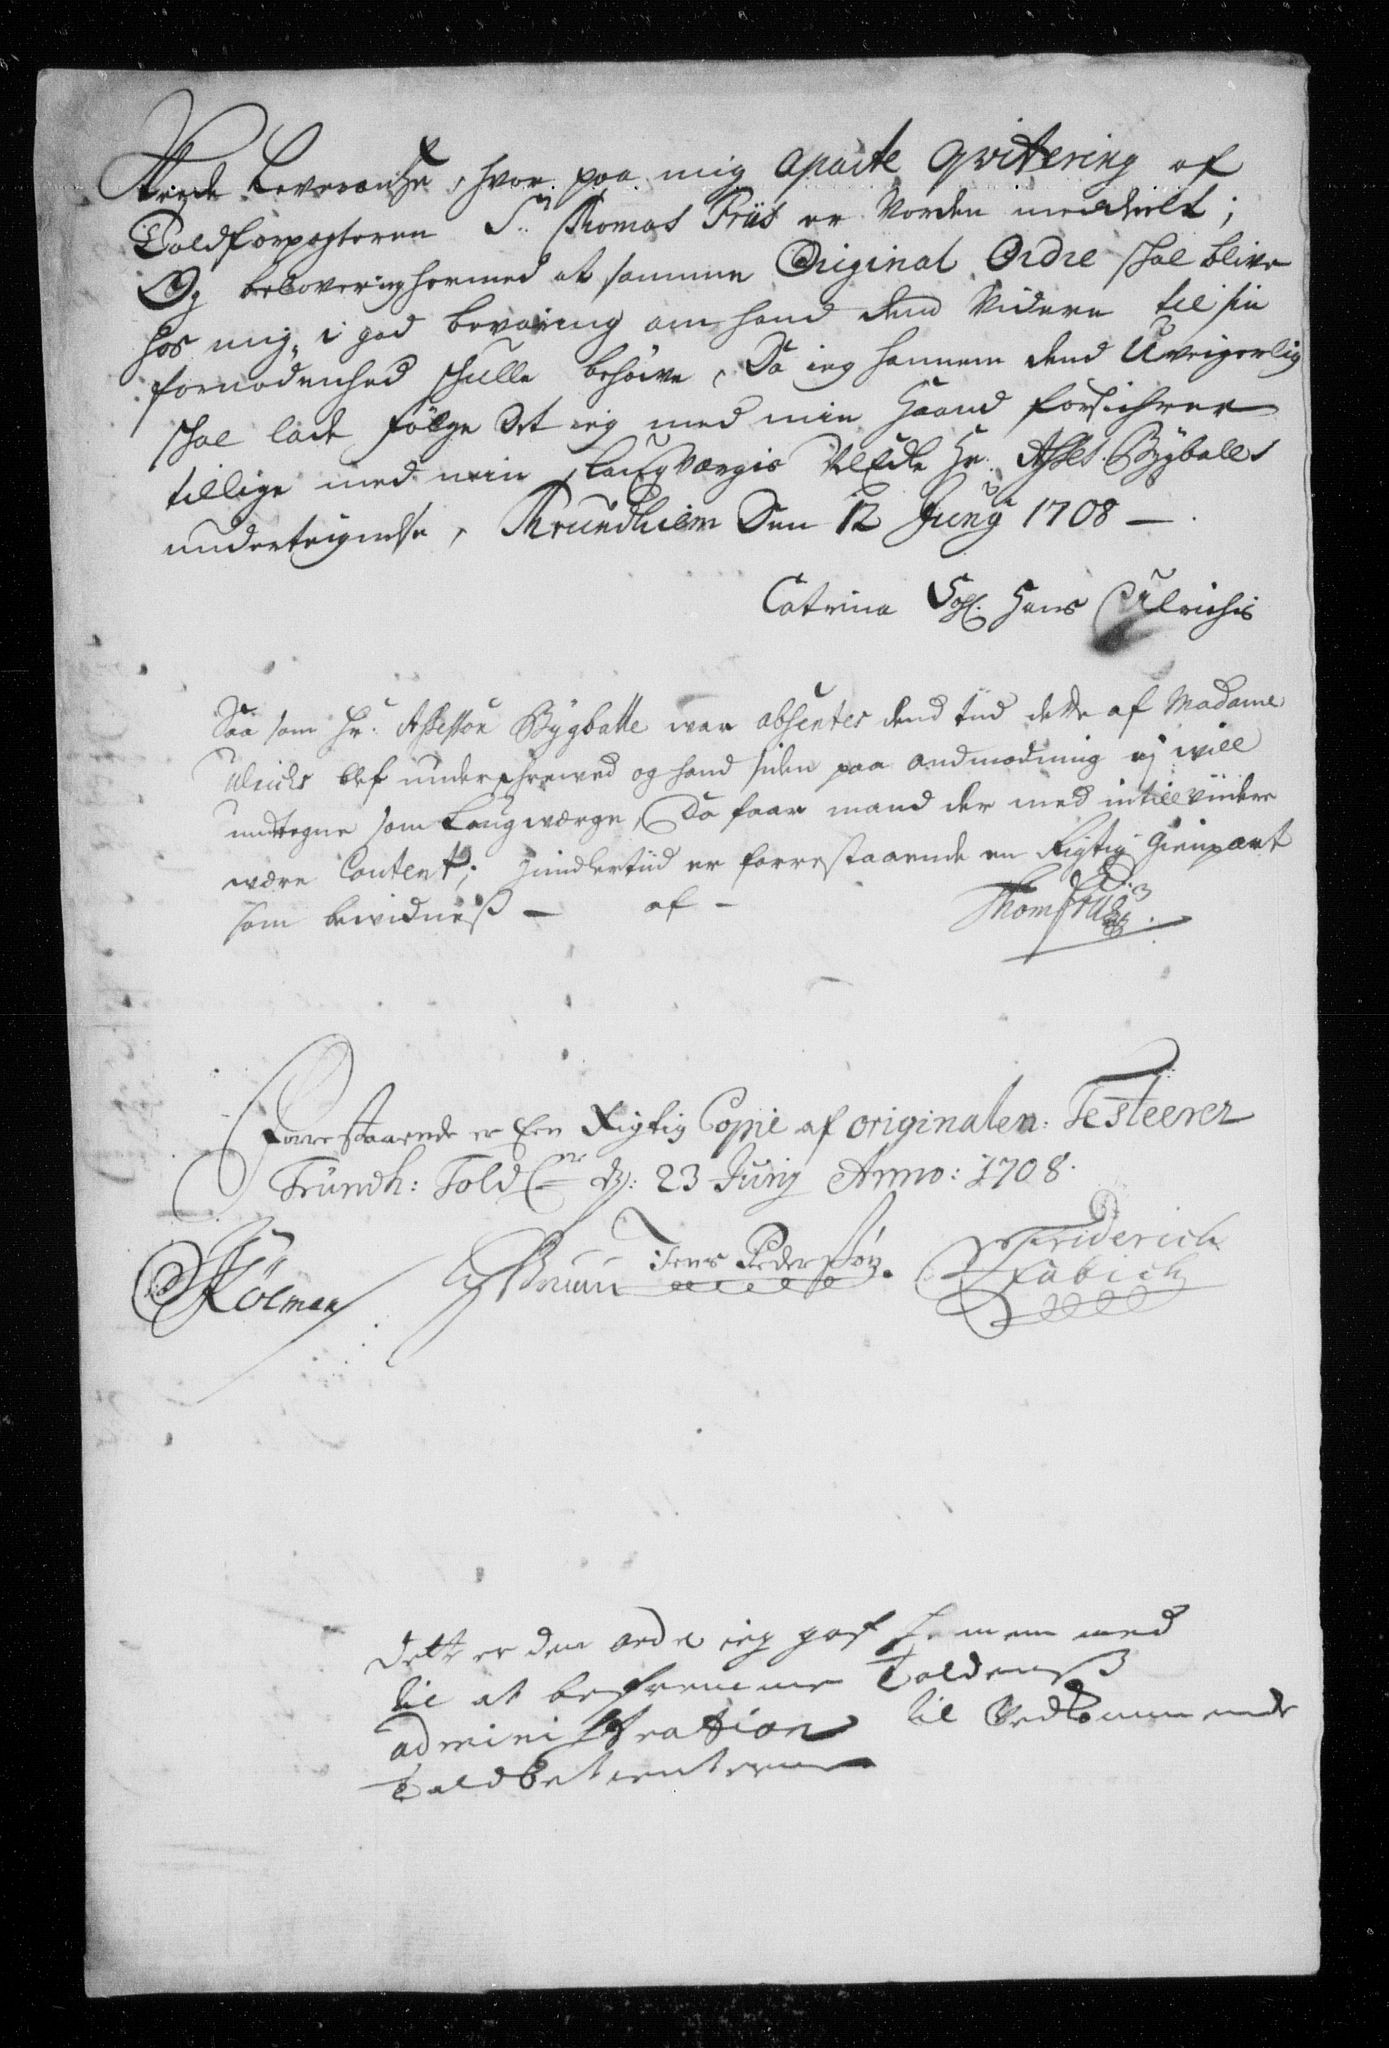 skeede Leverantze, hvor paa mig aparte qvitering af
Toldforpagteren Sr. Thomas Friis er Vorden meddeelt;
Og belover ieg hermed at samme Original Ordre skal blive
hos mig, i god bevaring om hand dend Videre til sin
fornødenhed skulle behøive, Da ieg hannem dend Uveigerlig
skal lade følge Det ieg med min Haand forsichrer
tillige med min Laugværgis VelEdle Hr. Asses. Bygballes
underteignelse, Trundhiem Den 12 Junij 1708 —
Catrina Sal. Hans Ulrichsis
Saa som Hr. Assessor Bygballe war absenter dend tiid dette af Madame
Ulrichs blef underschrewed og hand siden paa andmodning ej will
undtegne som Laugwærge, Da faar mand der med intill viidere
være Content; Jmidlertiid er forrestaaende en Rigtig Gienpart
som bewidneß — af — Thom Friis
Forrestaaende er Een Rigtig Copie af originalen. Testeerer
Trundh: Told C D: 23 Junij Anno: 1708.
Kølman Bruun Jens Pedersøn. Friderich
Fabich
Dette er den ordre ieg gaf hannem med
til at befremme Toldenß
administration til Vedkommende
Toldbetienterne